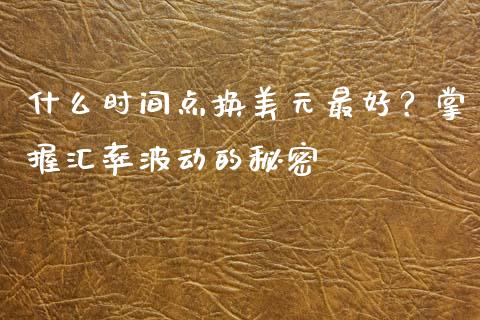 什么时间点换美元最好？掌
握汇率波动的秘密